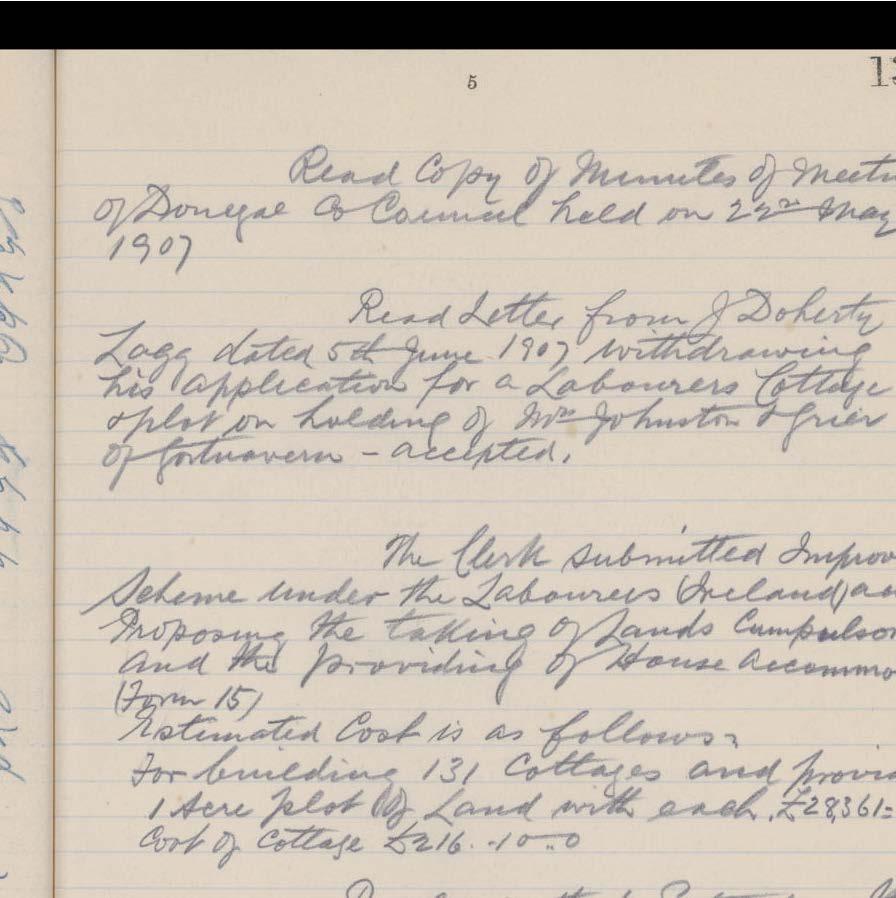 5
13
Read Copy of Minutes of Meetin
of Donegal Co Council held on 22nd May
1907
Read Letter from J Doherty
Lagg dated 5th June 1907 withdrawing
his application for a Labourers Cottage
& plot on holding of Johnston & Grier
of Gortnavern - accepted.
The Clerk submitted Improv
Scheme under the Labourers (Ireland) ac
Proposing the taking of Lands Cumpulsor
and the providing of House accommo
(Form 15)
Estimated Cost is as follows:
For building 131 Cottages and provid
1 Acre plot of Land with each. £28,361=
Cost of Cottage £216.-10-.0